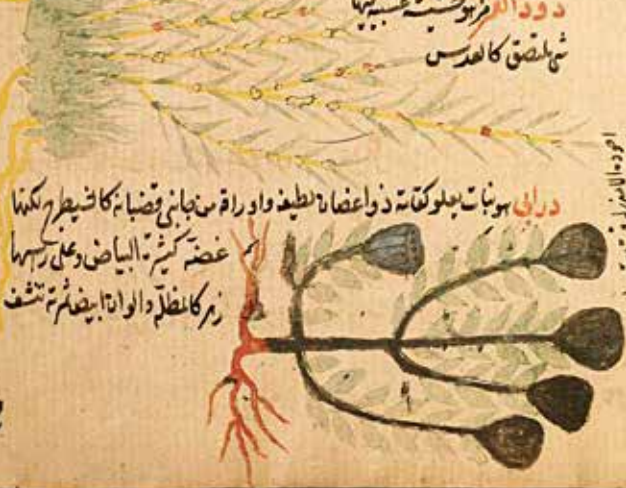 هو
شئ ملتصق كالعدس
درابى هو نبات يعلو كقامة ذو اغصان لطيفه واوراقه من جانبى قضبانه كالشيطرج لكنها
غضة كثيرة البياض وعلى رأسها
زهر كالمظلّة والوانه ابيض ثمرته تنشف
اجوده